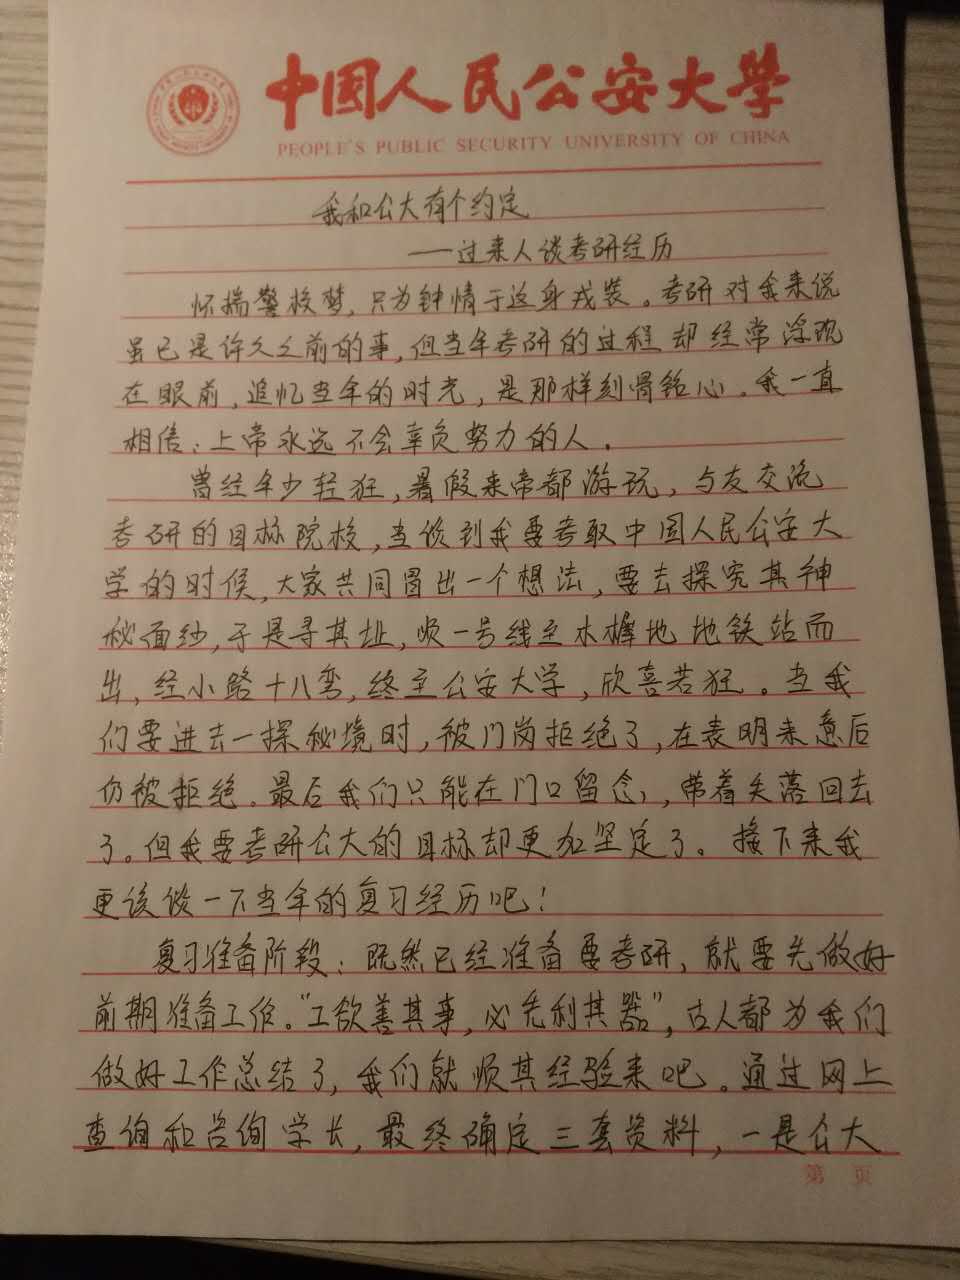 中国人民公安大学
PEOPLE'S PUBLIC SECURITY UNIVERSITY OF CHINA
我和公大有个约定
——过来人谈考研经历
怀揣警校梦,只为钟情于这身戎装。考研对我来说
虽已是许久之前的事,但当年考研的过程却经常浮现
在眼前,追忆当年的时光,是那样刻骨铭心。我一直
相信:上帝永远不会辜负努力的人。
曾经年少轻狂,暑假来帝都游玩,与友交流
考研的目标院校,当谈到我要考取中国人民公安大
学的时候,大家共同冒出一个想法,要去探究其神
秘面纱,于是寻其址,顺一号线至木樨地地铁站而
出,经小路十八弯,终至公安大学,欣喜若狂。当我
们要进去一探秘境时,被门岗拒绝了,在表明来意后
仍被拒绝。最后我们只能在门口留念,带着失落回去
了。但我要考研公大的目标却更加坚定了。接下来我
更该谈一下当年的复习经历吧!
复习准备阶段:既然已经准备要考研,就要先做好
前期准备工作。“工欲善其事,必先利其器”,古人都为我们
做好工作总结了,我们就顺其经验来吧。通过网上
查询和咨询学长,最终确定三套资料,一是公大
第 页